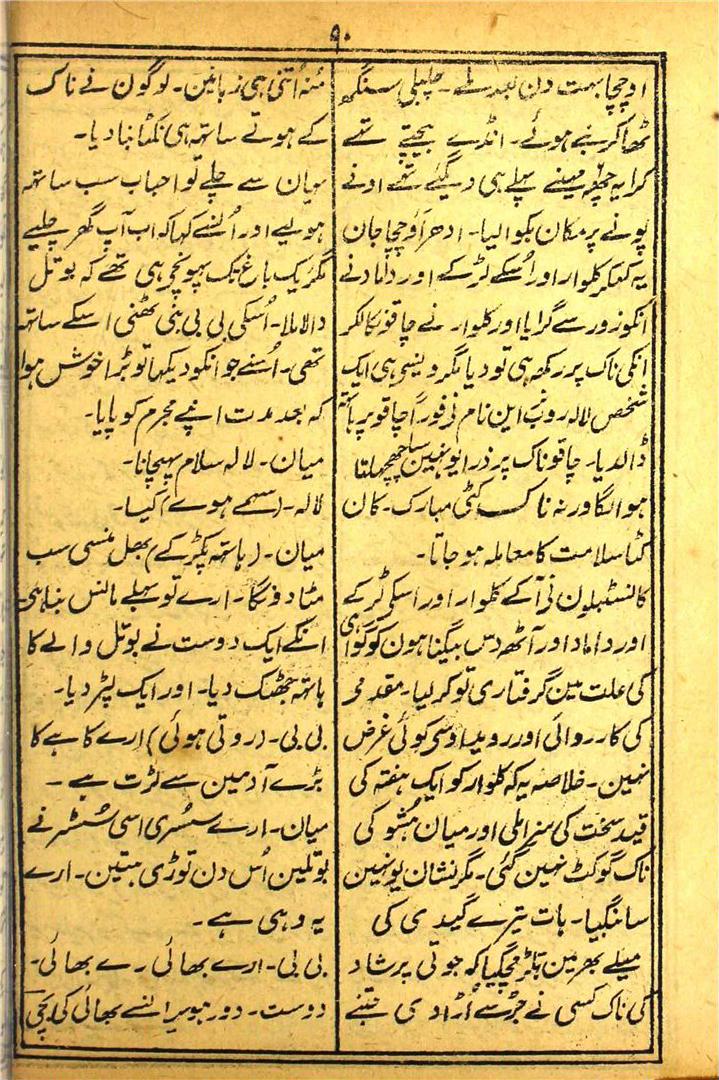 ۹۰
او چچا بہت دن بعد ملے۔ چلبلی سنگھ
ٹھاکر بنے ہوئے۔ انڈے بیچتے تھے
کرایہ چھ مہینے پہلے ہی دیگئے تھے اونے
پونے پر مکان بکوالیا۔ ادھر آؤ چچا جان
یہ کہکر کلوار اور اُسکے لڑکے اور داماد نے
انکو زور سے گرایا اور کلوار نے چاقو نکالکر
انکی ناک پر رکھ ہی تو دیا مگر ویسی ہی ایک
شخص لالہ روپ این نام نی فوراً چاقو پر ہاتھ
ڈالدیا۔ چاقو ناک پر ذرا یوہنین سا چھچھلتا
ہوا لگا ورنہ ناک کٹی مبارک۔ کان
کٹا سلامت کا معاملہ ہو جاتا۔
کانسٹبلون نی آ کے کلوار اور اسکی لڑکے
اور داماد اور آٹھ دس بیگناہون کو گواہی
کی علت مین گرفتاری تو کر لیا۔ مقدمہ
کی کارروائی اور رویداد سی کوئی غرض
نہین۔ خلاصہ یہ کہ کلوار کو ایک ہفتہ کی
قید سخت کی سزا ملی اور میان مُشو کی
ناک گو کٹ نہین گئی۔ مگر نشان یوہنین
سا نگیا۔ بات تیرے گیدی کی
میلے بھر مین ہلڑ مچگیا کہ جوتی پرشاد
کی ناک کسی نے جڑ سے اُڑا دی جتنے
مُنہ اُتنی ہی زبانین۔ لوگون نے ناک
کے ہوتے ساتھ ہی نکٹا بنا دیا۔
میان سے چلے تو احباب سب ساتھ
ہولیے اور اُنسے کہا کہ اب آپ گھر چلیے
مگر یک باغ تک پہونچی ہی تھے کہ بوتل
والا ملا۔ اُسکی بی بی بنی ٹھنی اسکے ساتھ
تھی۔ اُسنے جو انکو دیکھا تو بڑا خوش ہوا
کہ بعد مدت اپنے مجرم کو پایا۔
میان۔ لالہ سلام پہچانا۔
لالہ۔ (سہمے ہوے) کیا۔
میان۔ (ہاتھ پکڑ کے) بھل منسی سب
مٹا دونگا۔ ارے تو بہلے مانس بنا ہی۔
انکے ایک دوست نے بوتل والے کا
ہاتھ جھٹک دیا۔ اور ایک لپڑ دیا۔
بی بی۔ (روتی ہوئی) ارے کاہے کا
بڑے آدمین سے لڑت ہے۔
میان۔ ارے سسُری اسی سُسٹر نے
بوتلین اُس دن توڑی ہتین۔ ارے
یہ وہی ہے۔
بی بی۔ ارے بھائی رے بھائی۔
دوست۔ دور ہو سرا لنے بھائی کی بچی